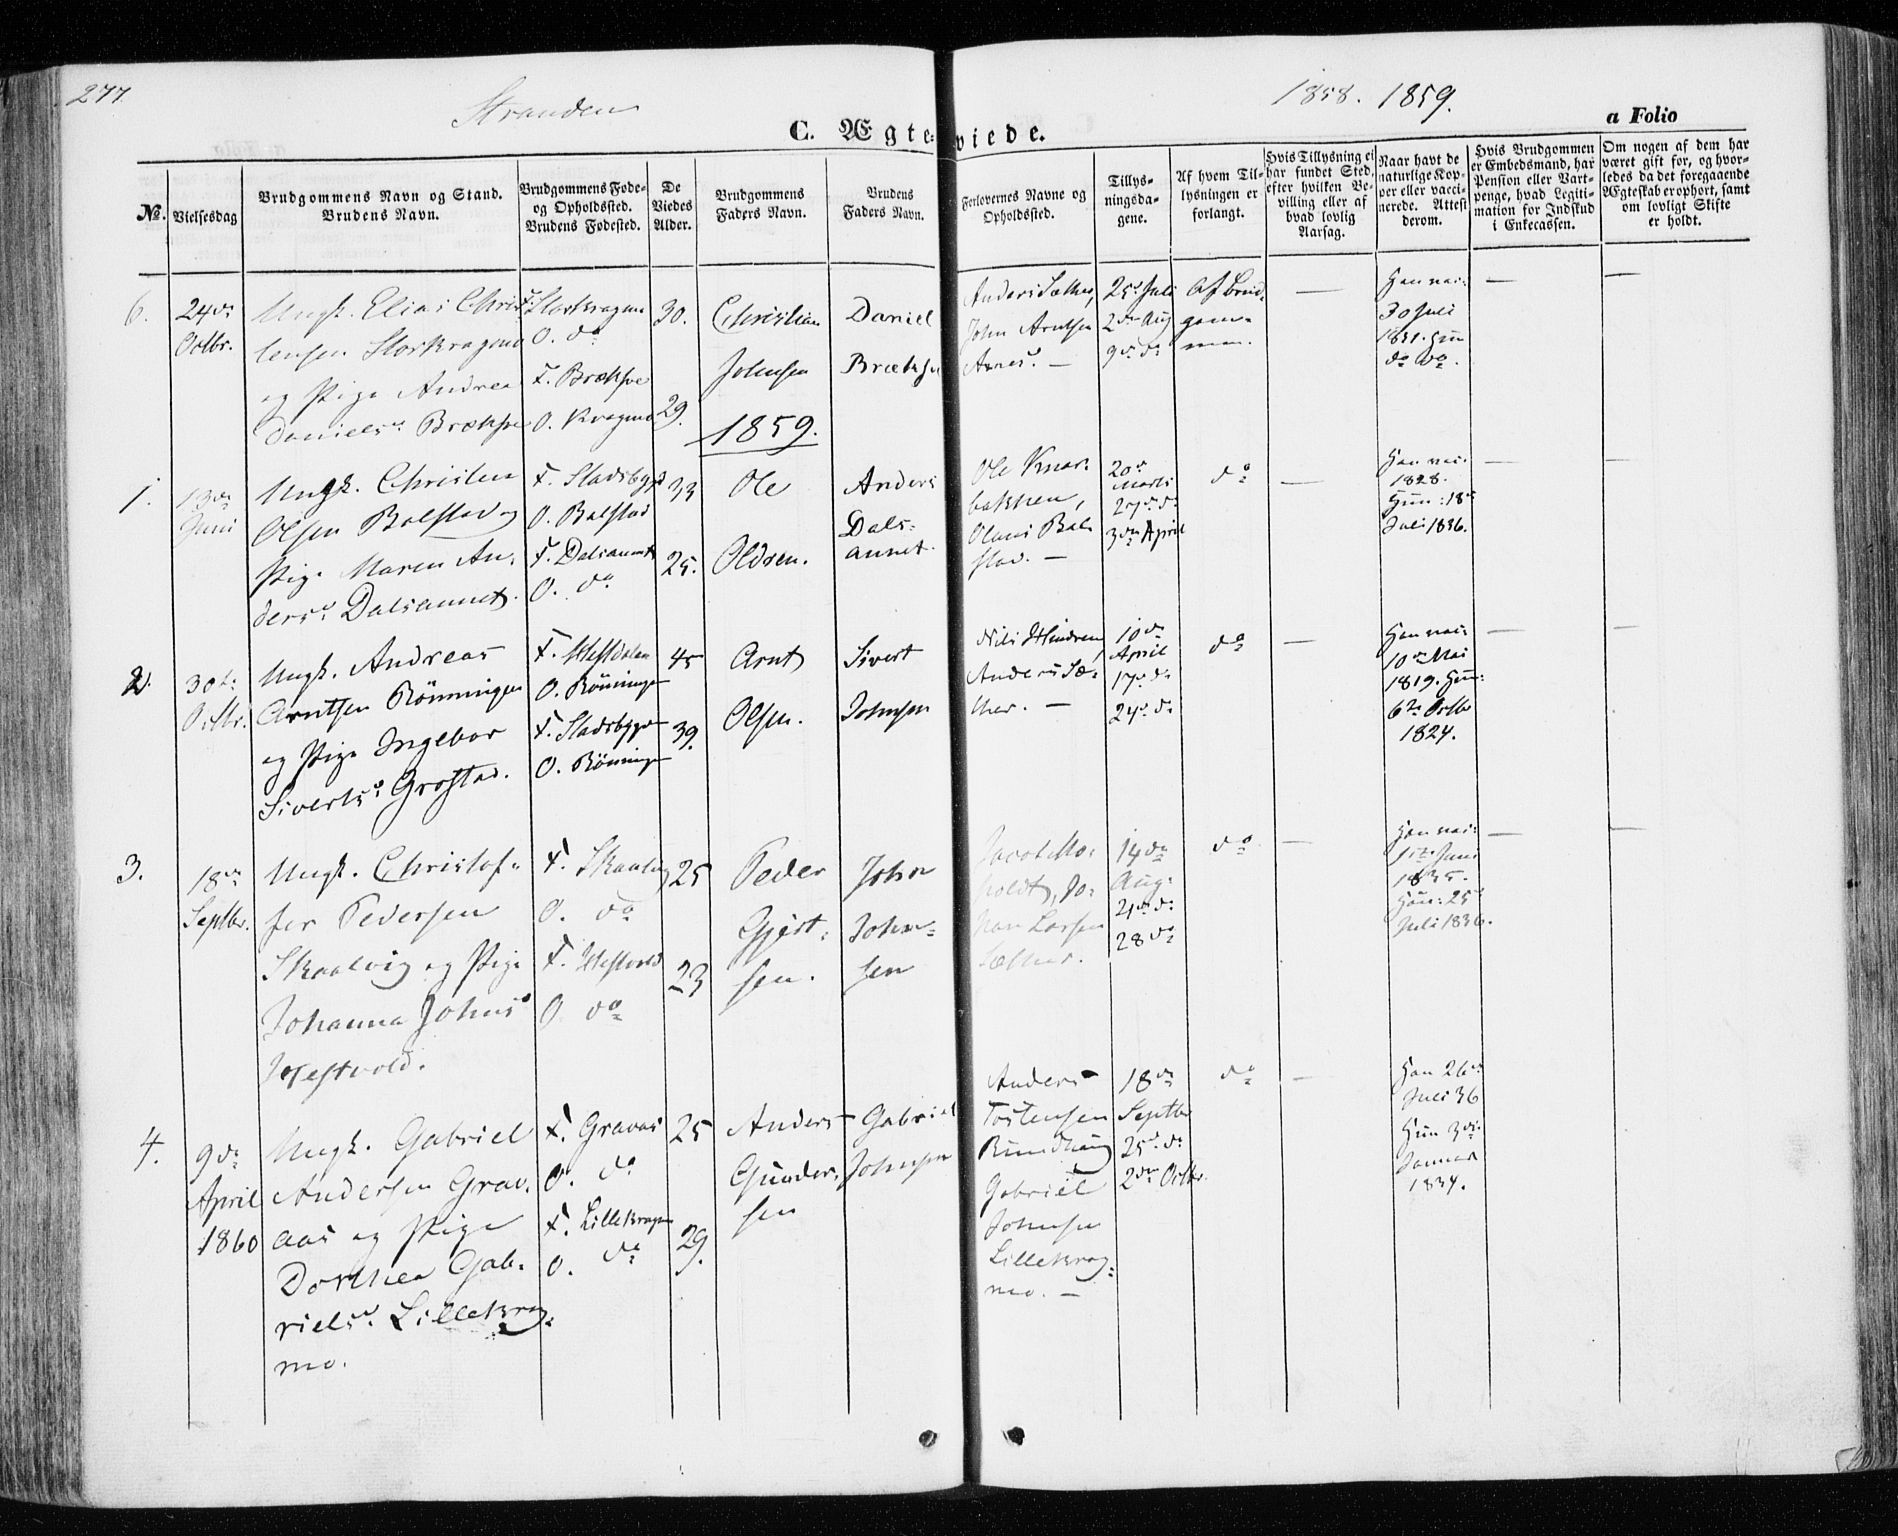 277.
Stranden
1858. 1859.
C. Ægteviede.
a Folio
No.
Vielsesdag
Brudgommens Navn og Stand.
Brudens Navn.
Brudgommens Føde-
og Opholdssted.
Brudens Fødested.
De
Viedes
Alder.
Brudgommens
Faders Navn.
Brudens
Faders Navn.
Forlovernes Navne og
Opholdssted.
Tillys-
ningsda-
gene.
Af hvem Til-
lysningen er
forlangt.
Hvis Tillysning ei
har fundet Sted,
efter hvilken Be-
villing eller af
hvad lovlig
Aarsag.
Naar havt de
naturlige Kop-
per eller vacci-
nerede. Attest
derom.
Hvis Brudgommen
er Embedsmand, har
Pension eller Vart-
penge, hvad Legiti-
mation for Indskud
i Enkecassen.
Om nogen af dem har
været gift for, og hvor-
ledes da det foregaaende
Ægteskab er ophort, samt
om lovligt Skifte
er holdt.
6.
24de
Octbr.
Ungk. Elias Chris
tensen Storkragmo
og Pige Andrea
Danielsd. Brækhe
F. Storkragmo
O. do
F. Brækhe
O. Kragmo
30.
29.
Christian
Johnsen
Daniel
Anders Sæther,
John Arntsen
25d Juli
2den Aug
9de do
Af Brud-
gom-
men.
—
Han vac:
30 Juli
1831. Hun
do do.
—
—
1859.
1.
13de
Juni
Ungk. Christen
Olsen Balstad og
Pige Maren An-
dersd. Dalsaunet.
F. Stadsbygd
O. Balstad
F. Dalsaunet
O. do
33
25.
Ole
Oldsen.
Anders
Dals-
aunet.
Ole
bakken,
Olaus Bal
stad. —
20d
Marts
27de do
3den April
do
—
Han vac.
1828.
Hun: 18d
Juli 1836.
—
—
2.
30te
Octbr.
Ungk. Andreas
Arntsen Rönningen
og Pige Ingebor
Sivertsd. Grøstad.
O. Rönningen
F. Stadsbygd
O. Rönningen
45
39.
Arnt
Olsen.
Sivert
Johnsen
Nils
Anders Sæ-
ther. —
10de
April
17de do
24d do
do
—
Han vac:
10de Mai
1819. Hun:
6te Octbr
1824.
—
—
3.
18de
Septbr.
Ungk. Christof-
fer Pedersen
Skaalvig og Pige
Johanna Johnsd
Westvold.
F. Skaalvig
O. do
F. Westvold
O. do
25
23
Peder
Gjert-
sen.
John
John-
sen
Jacob Mo-
holdt, Jo-
han Larsen
Sæther.
14de
Aug:
21de do
28 do
do
—
Han vac:
Juni
1835.
Hun: 25d
Juli 1836.
—
—
4.
9de
April
1860
Ungk. Gabriel
Andersen Grav-
aas og Pige
Dorthea Gab-
rielsd. Lillekrag-
mo.
F. Gravaas
O. do
F. Lillekragmo
O. do
25
29.
Anders
Gunder-
sen
Gabriel
Johnsen
Anders
Tostensen
Rundhaug
Gabriel
Johnsen
Lillekrag-
mo. —
18de
Septbr
25d do
2den Octbr.
do
—
Han 26de
Juli 36
Hun 3die
Januar
1834.